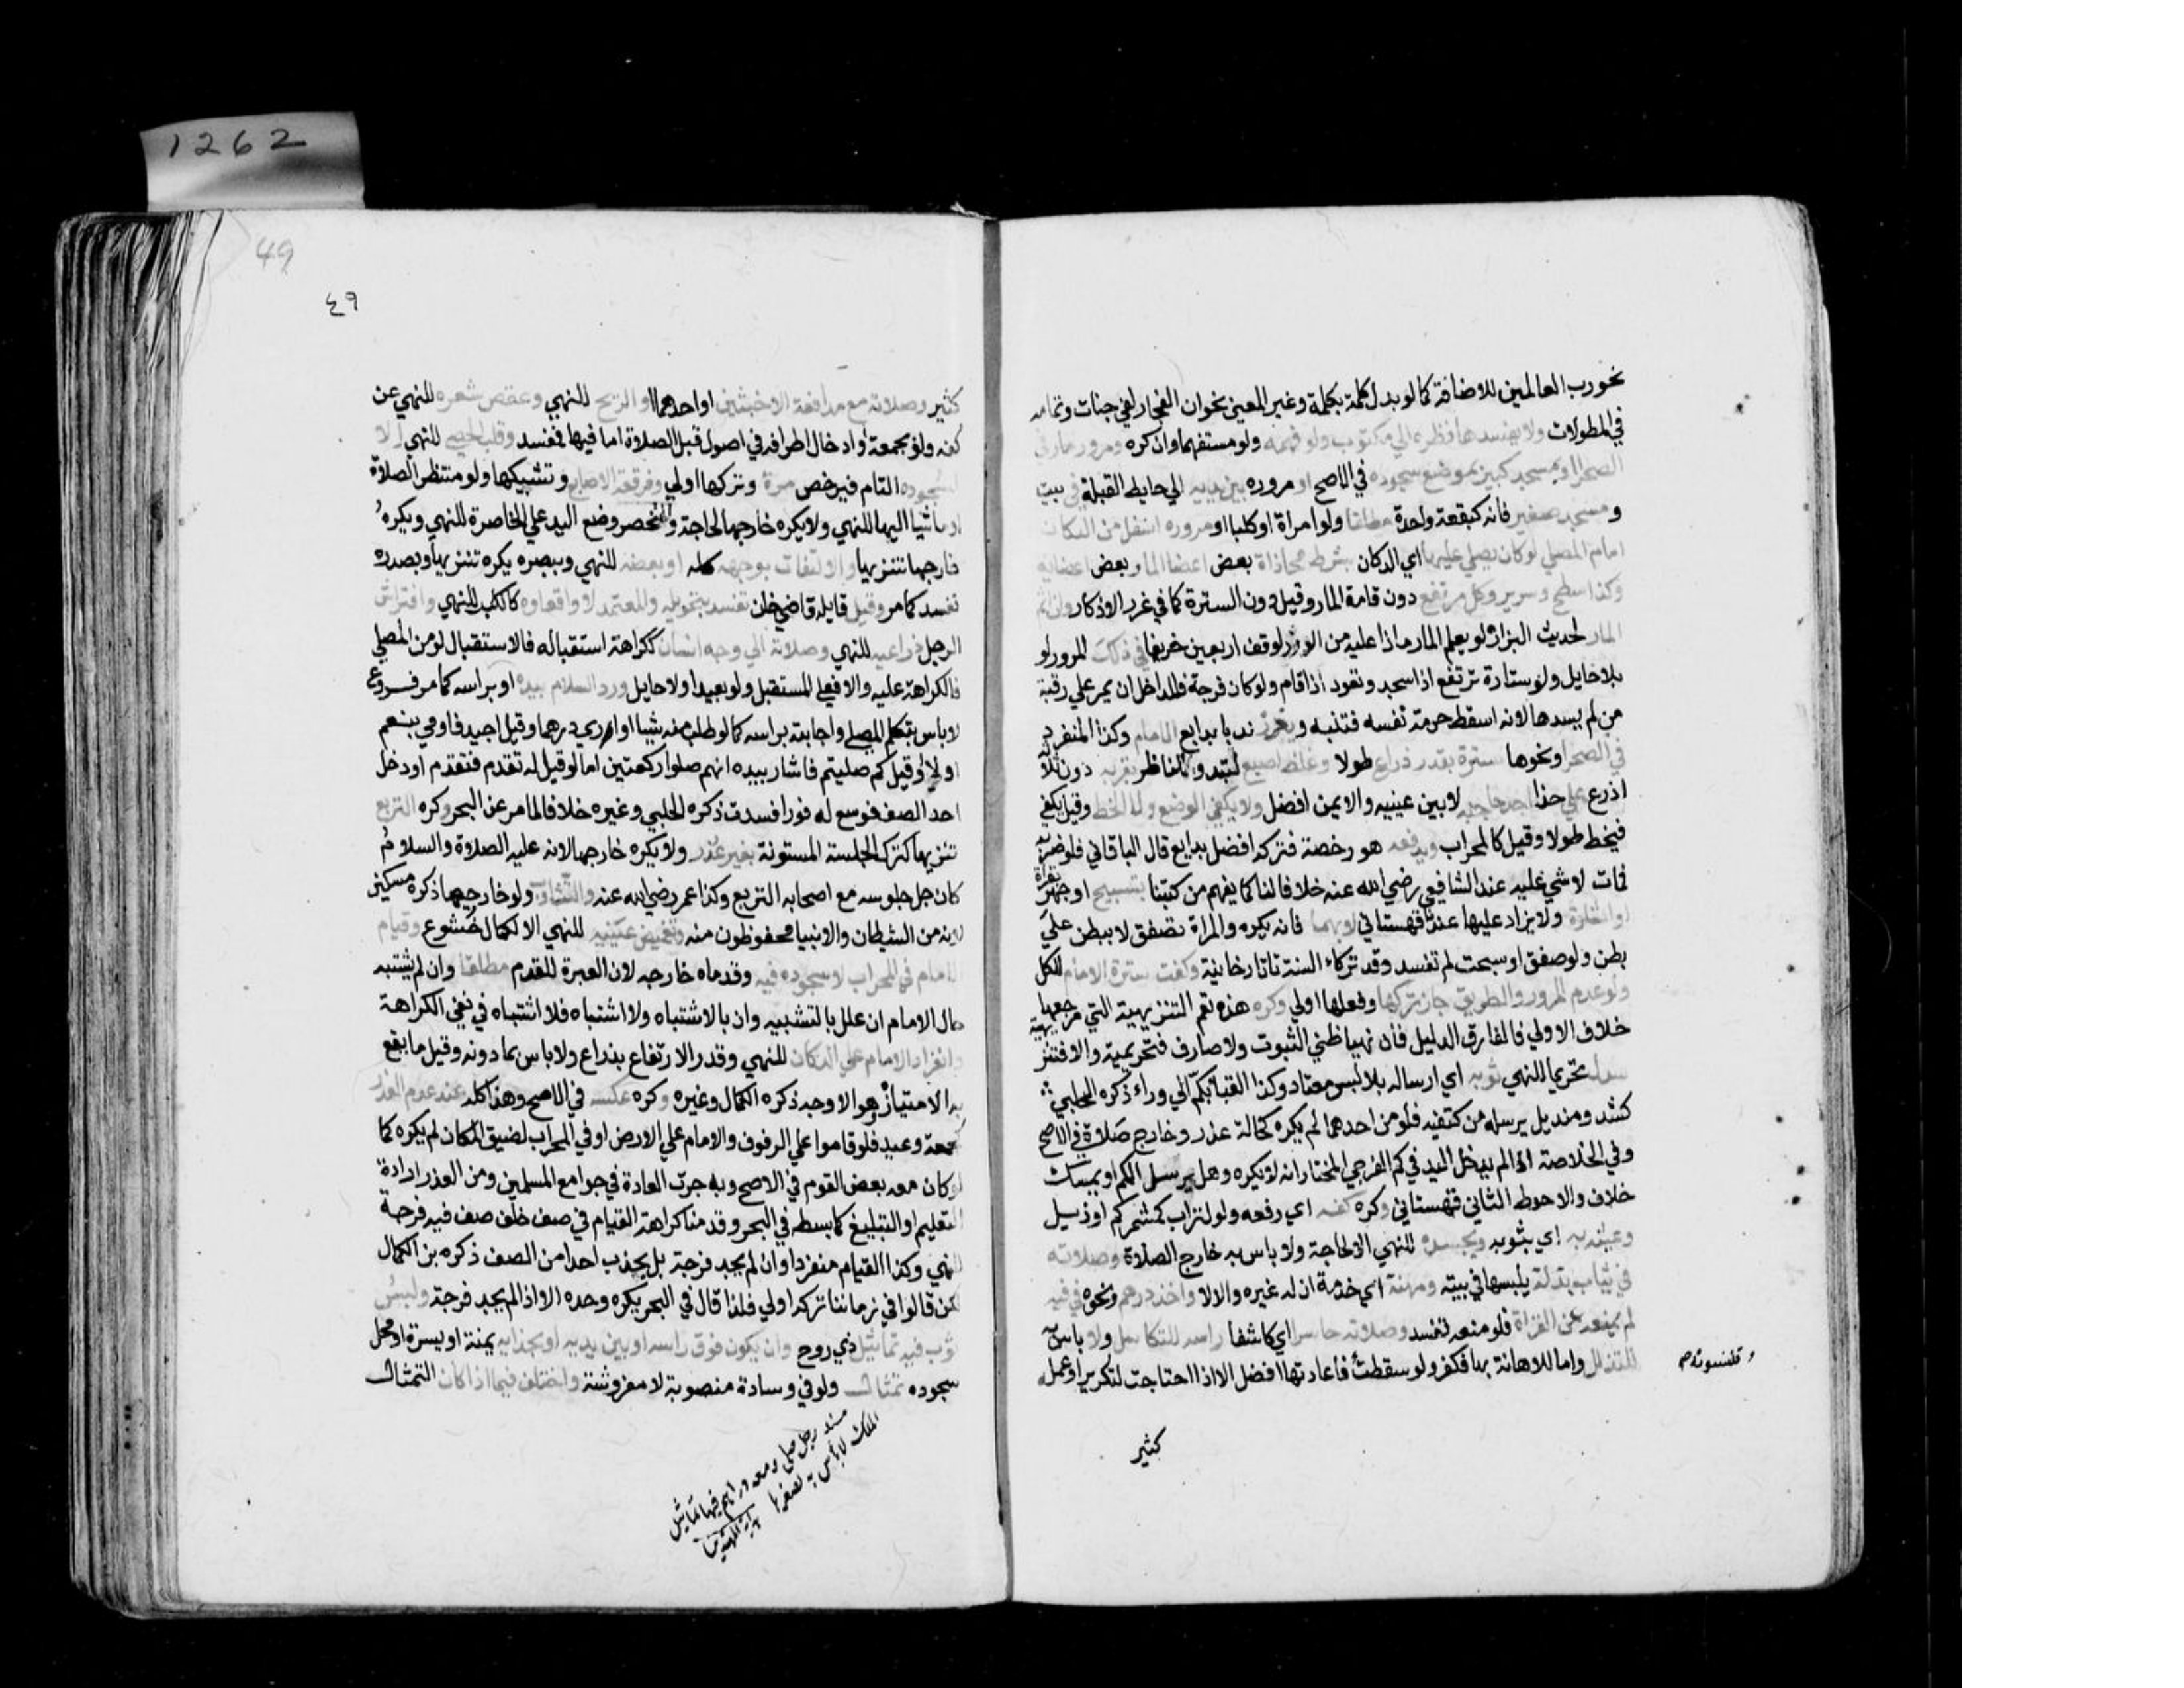 نحو رب العالمين للاضافة كما لو بدل كلمة بكلمة وغير المعنى نحو ان الفجار لفي جنات وتمامه
في المطولات ولا يفسدها نظره الي مكتوب ولو فهمه ولو مستفهما وان كره ومرور مار في
الصحرا او بمسجد كبير بموضع سجوده في الاصح او مروره بين يديه الي حايط القبلة في بيت
ومسجد صغير فانه كبقعة واحدة مطلقا ولو امراة او كلبا او مروره اسفل من الدكان
امام المصلي لو كان يصلي عليها اي الدكان بشرط محاذاة بعض اعضا المار بعض اعضايه
وكذا سطح وسرير وكل مرتفع دون قامة المار وقيل دون السترة كما في غرر الاذكار وان اثم
المار لحديث البزار لو يعلم المار ماذا عليه من الوزر لوقف اربعين خريفا في ذلك المرور لو
بلا حايل ولو ستارة ترتفع اذا سجد وتعود اذا قام ولو كان فرجة فللداخل ان يمر علي رقبة
من لم يسدها لانه اسقط حرمة نفسه فتنبه ويغرز ندبا بدايع الامام وكذا المنفرد
في الصحرا ونحوها سترة بقدر ذراع طولا وغلظ اصبع لتبدو للناظر بقربه دون ثلاثة
اذرع علي حذا احد حاجبيه لا بين عينيه والايمن افضل ولا يكفي الوضع ولا الخط وقيل يكفي
فيخط طولا وقيل كالمحراب ويدفعه هو رخصة فتركه افضل بدايع قال الباقاني فلو ضربه
فمات لا شي عليه عند الشافعي رضي الله عنه خلافا لنا كما يفهم من كتبنا بتسبيح او جهر بقراة
او اشارة ولا يزاد عليها عندنا قهستاني لا بهما فانه يكره والمراة تصفق لا ببطن علي
بطن ولو صفق او سبحت لم تفسد وقد تركا السنة تاتارخانية وكفت سترة الامام للكل
ولو عدم المرور والطريق جاز تركها وفعلها اولي وكره هذه تعم التنزيهية التي مرجعها
خلاف الاولي فالفارق الدليل فان نهيا ظني الثبوت ولا صارف فتحريمية والا فتنزيهية
سدل تحريما للنهي ثوبه اي ارساله بلا لبس معتاد وكذا القبا بكم الي وراء ذكره الحلبي
كشد ومنديل يرسله من كتفيه فلو من احدهما لم يكره كحالة عذر وخارج صلاة في الاصح
وفي الخلاصة اذا لم يدخل اليد في كم الفرجي المختار انه لا يكره وهل يرسل الكم او يمسك
خلاف والاحوط الثاني قهستاني وكره كفه اي رفعه ولو لتراب كمشمر كم او ذيل
وعبثه به اي بثوبه وبجسده للنهي الا لحاجة ولا باس به خارج الصلاة وصلاته
في ثياب بذلة يلبسها في بيته ومهنة اي خدمة ان له غيره والا لا واخذ درهم ونحوه في فيه
لم يمنعه عن القراة فلو منعه تفسد وصلاته حاسرا اي كاشفا راسه للتكاسل ولا باس به
للتذلل واما للاهانة بها فكفر ولو سقطت فاعادتها افضل الا اذا احتاجت لتكرير او عمل
قلنسوته
كثير
49
٤٩
كثير وصلاته مع مدافعة الاخبثين او احدهما او الريح للنهي وعقص شعره للنهي عن
كفه ولو بجمعه او ادخال اطرافه في اصوله قبل الصلاة اما فيها فتفسد وقلب الحصي للنهي الا
لسجوده التام فيرخص مرة وتركها اولي وفرقعة الاصابع وتشبيكها ولو منتظر الصلاة
او ماشيا اليها للنهي ولا يكره خارجها لحاجة والتخصر وضع اليد علي الخاصرة للنهي ويكره
خارجها تنزيها والالتفات بوجهه كله او بعضه للنهي وببصره يكره تنزيها وبصدره
تفسد كما مر وقيل قايله قاضي خان تفسد بتحويله والمعتمد لا واقعاوه كالكلب للنهي وافتراش
الرجل ذراعيه للنهي وصلاته الي وجه انسان ككراهة استقباله فالاستقبال لو من المصلي
فالكراهة عليه والا فعلي المستقبل ولو بعيدا ولا حايل ورد السلام بيده او براسه كما مر فروع
لا باس بتكلم المصلي واجابته براسه كما لو طلب منه شيا او اري درهما وقيل اجيد فاومي بنعم
او لا او قيل كم صليتم فاشار بيده انهم صلوا ركعتين اما لو قيل له تقدم فتقدم او دخل
احد الصف فوسع له فورا فسدت ذكره الحلبي وغيره خلافا لما مر عن البحر وكره التربع
تنزيها لترك الجلسة المسنونة بغير عذر ولا يكره خارجها لانه عليه الصلاة والسلام
كان جل جلوسه مع اصحابه التربع وكذا عمر رضي الله عنه والتثاوب ولو خارجها ذكره مسكين
لانه من الشيطان والانبيا محفوظون منه وتغميض عينيه للنهي الا لكمال خشوع وقيام
الامام في المحراب لا سجوده فيه وقدماه خارجه لان العبرة للقدم مطلقا وان لم يشتبه
حال الامام ان علل بالتشبيه وان بالاشتباه ولا اشتباه فلا اشتباه في نفي الكراهة
وانفراد الامام علي الدكان للنهي وقدر الارتفاع بذراع ولا باس بما دونه وقيل ما يقع
به الامتياز وهو الاوجه ذكره الكمال وغيره وكره عكسه في الاصح وهذا كله عند عدم العذر
كجمعة وعيد فلو قاموا علي الرفوف والامام علي الارض او في المحراب لضيق المكان لم يكره كما
لو كان معه بعض القوم في الاصح وبه جرت العادة في جوامع المسلمين ومن العذر ارادة
التعليم او التبليغ كما بسطه في البحر وقدمنا كراهة القيام في صف خلف صف فيه فرجة
للنهي وكذا القيام منفردا وان لم يجد فرجة بل يجذب احدا من الصف ذكره بن الكمال
لكن قالوا في زماننا تركه اولي فلذا قال في البحر يكره وحده الا اذا لم يجد فرجة ولبس
ثوب فيه تماثيل ذي روح وان يكون فوق راسه او بين يديه او بحذايه يمنة او يسرة او محل
سجوده تمثال ولو في وسادة منصوبة لا مفروشة واختلف فيما اذا كان التمثال
رجل صلى ومعه دراهم فيها تماثيل
الملك لا بأس به لصغرها
1262